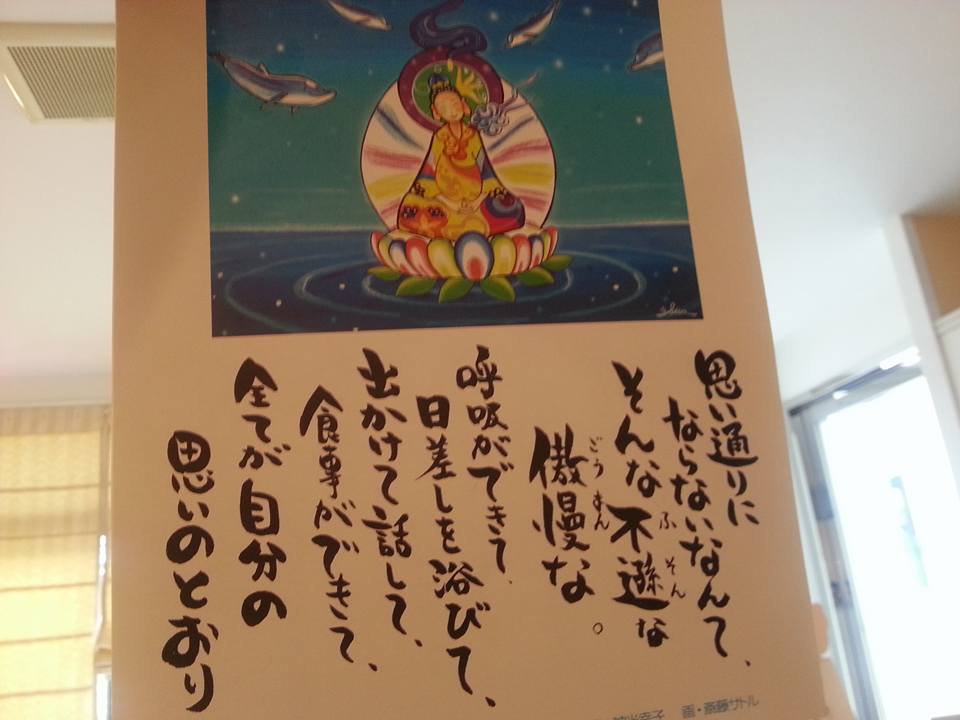 思い通りに
ならないなんて、
そんな不遜な
ふそん
傲慢な。
ごうまん
呼吸ができて、
日差しを浴びて、
出かけて話して、
食事ができて、
全てが自分の
思いのとおり
画・斎藤サトル